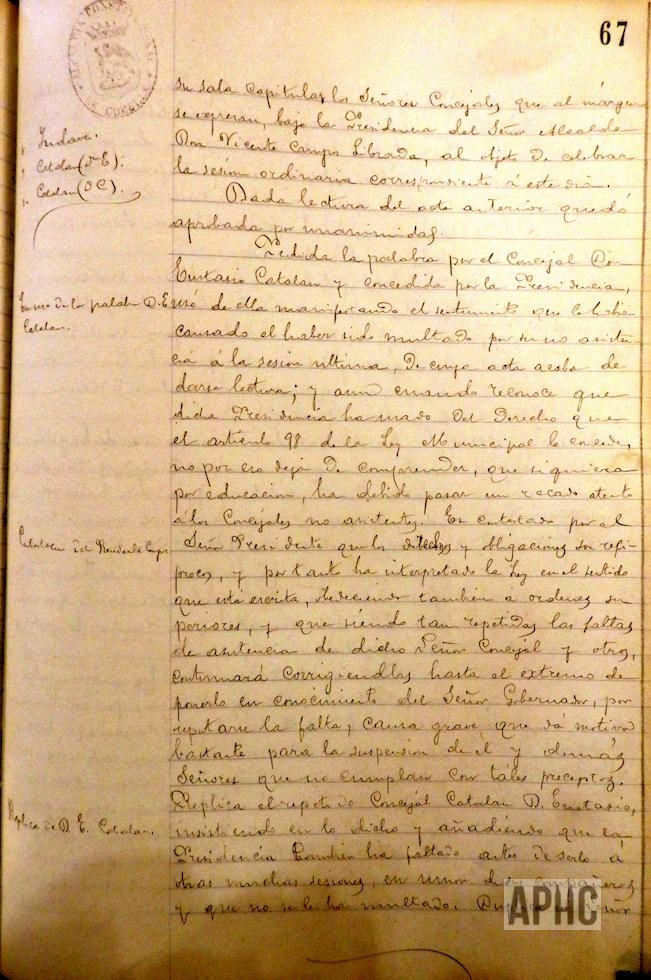 67
su sala capitular los Señores Concejales que al márgen
se espresan, bajo la Presidencia del Señor Alcalde
Don Vicente Campo Librada, al objeto de celebrar
la sesión ordinaria correspondiente á este dia.
Indave.
Catalan (D. E).
Catalan (D C).
Dada lectura del acta anterior quedó
aprobada por unanimidad.
Pedida la palabra por el Concejal Don
Eustasio Catalan y concedida por la Presidencia,
En uso de la palabra D. E.
Catalan.
uso de ella manifestando el sentimiento que le habia
causado el haber sido multado por su no asisten
cia á la sesión ultima, de cuya acta acaba de
darse lectura; y aun cuando reconoce que
dicha Presidencia ha usado del Derecho que
el artículo 98 de la Ley Municipal le concede,
no por eso deja de comprender, que siquiera
por educacion, ha debido pasar un recado atento
á los Concejales no asistentes. Es contestado por el
Contestacion del Presidente Campo
Señor Presidente que los derechos y obligaciones son reci
procos, y por tanto ha interpretado la Ley en el sentido
que está escrita, obedeciendo tambien a ordenes su
periores, y que siendo tan repetidas las faltas
de asistencia de dicho Señor Concejal y otros,
continuará corrigiendolas hasta el extremo de
ponerlo en conocimiento del Señor Gobernador, por
reputarse la falta, causa grave, que dá motivo
bastante para la suspension de él y demás
Señores que no cumplan con táles preceptos.
Replica de D. E. Catalan.
Replica el repetido Concejal Catalan D. Eustasio,
insistiendo en lo dicho y añadiendo que la
Presidencia tambien ha faltado antes de serlo á
otras muchas sesiones, en union de sus compañeros
y que no se le ha multado. Señor
APHC